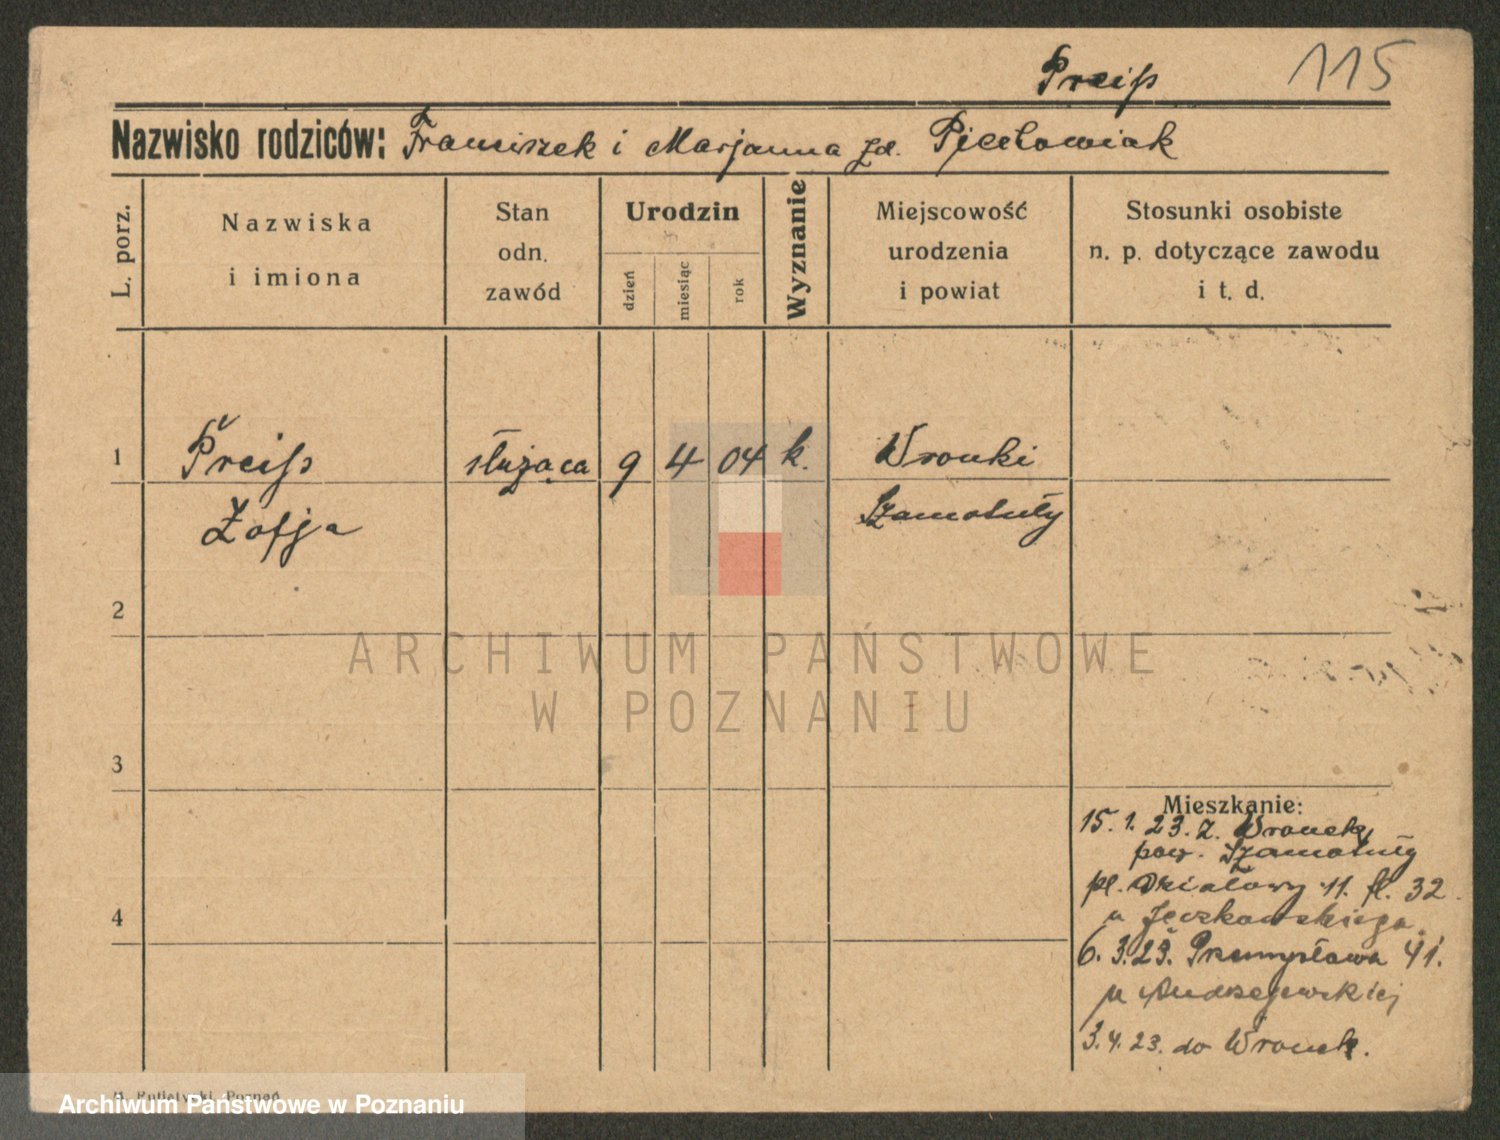 Preiß 115
Nazwisko rodziców: Franciszek i Marjanna zd. Pięctowiak
L. porz.
Nazwiska
i imiona
Stan
odn.
zawód
Urodzin
dzień
miesiąc
rok
Wyznanie
Miejscowość
urodzenia
i powiat
Stosunki osobiste
n. p. dotyczące zawodu
i t. d.
1 Preiß służąca 9 4 04 k. Wronki
Zofja Szamotuły
2
ARCHIWUM PAŃSTWOWE
W POZNANIU
3
Mieszkanie:
15. 1. 23. z. Wronek,
pow. Szamotuły
4
pl. Działowy 11. fl. 32
u Jęczkowskiego.
6. 3. 23. Przemysłowa 41.
u Andrzejewskiej
3. 4. 23. do Wronek.
Poznań
Archiwum Państwowe w Poznaniu